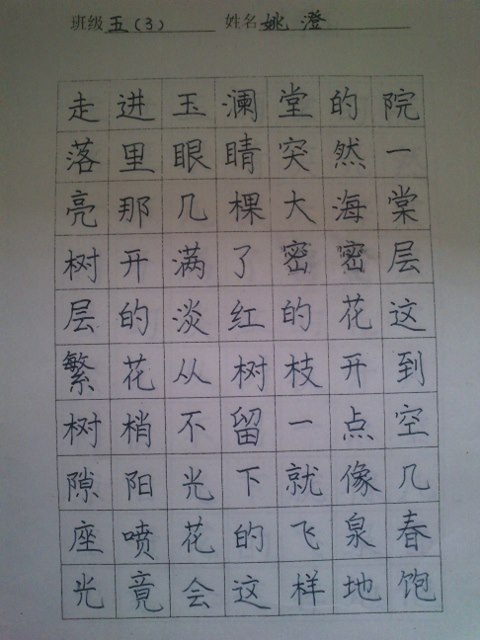 班级 五(3) 姓名 姚澄
走进玉澜堂的院
落里眼睛突然一
亮那几棵大海棠
树开满了密密层
层的淡红的花这
繁花从树枝开到
树梢不留一点空
隙阳光下就像几
座喷花的飞泉春
光竟会这样地饱